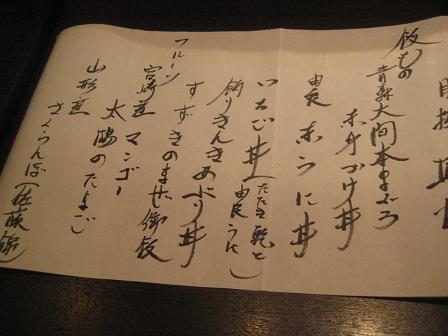 飯もの
青森大間本まぐろ
赤身づけ丼
由良 赤うに丼
いちご丼(たたき鮑と
由良うに)
釣りきんきあぶり丼
すずきのまぜ御飯
フルーツ
宮崎産 マンゴー
太陽のたまご
山形産
さくらんぼ(佐藤錦)